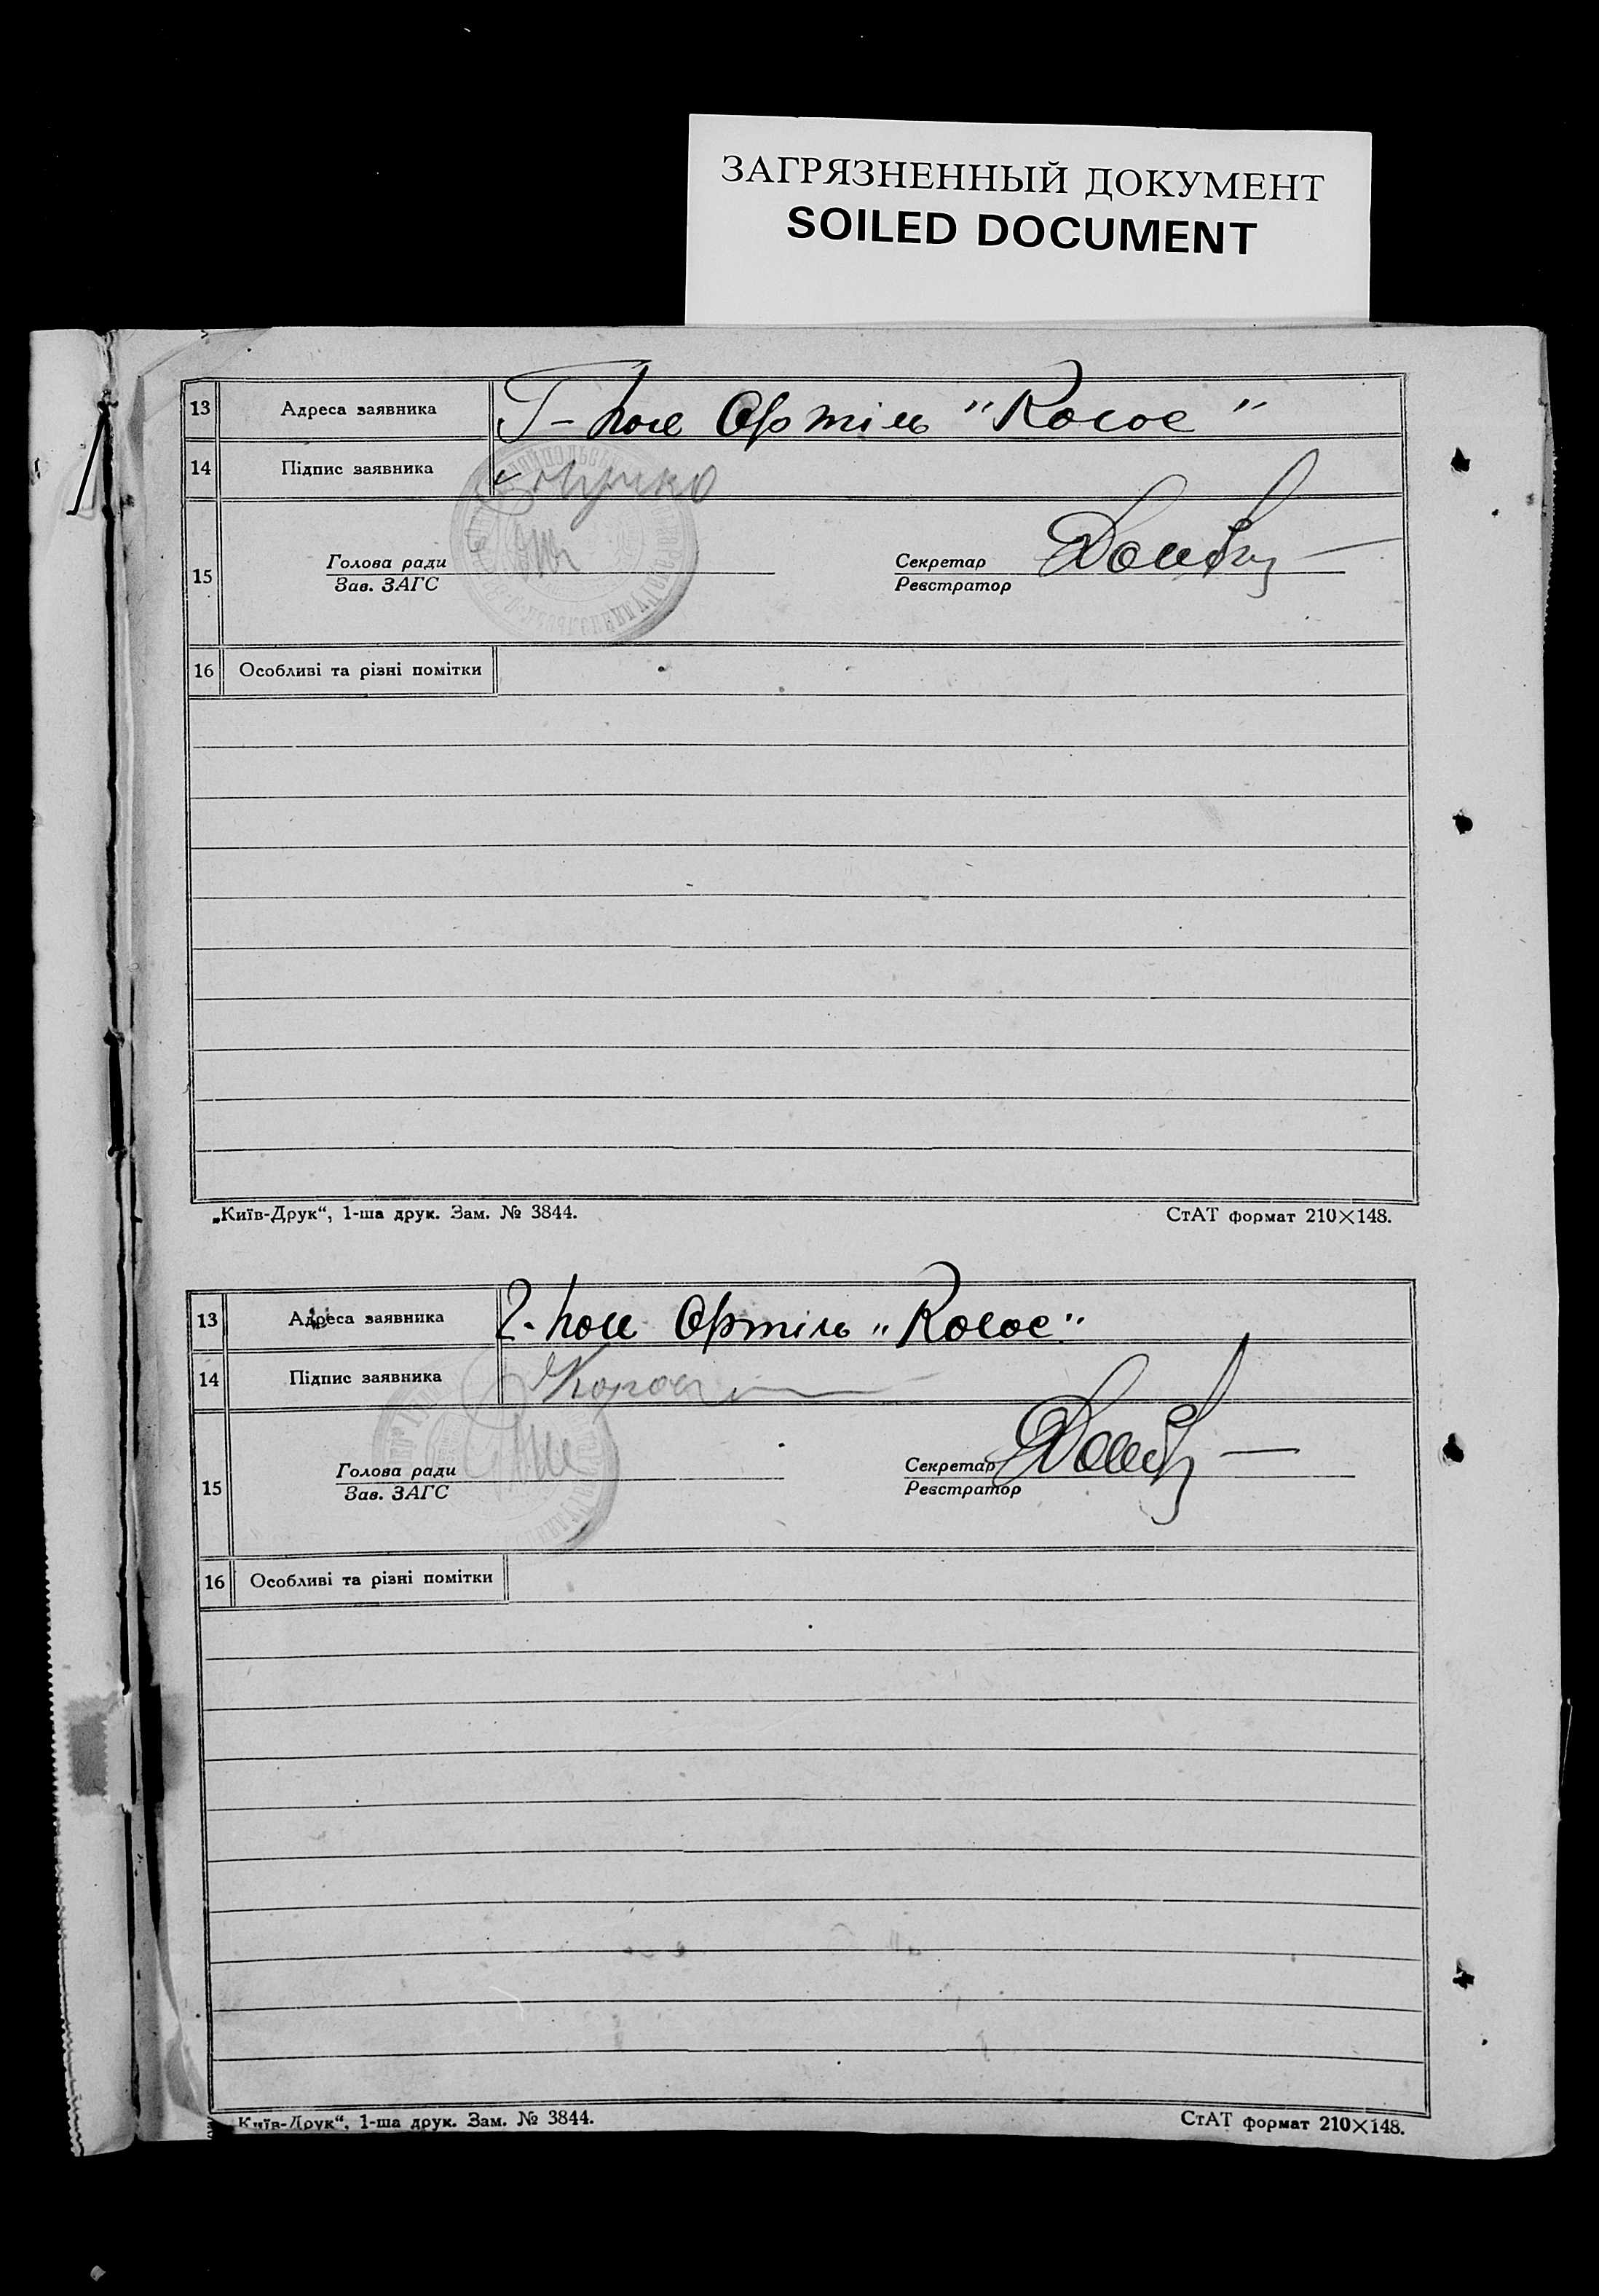 ЗАГРЯЗНЕННЫЙ ДОКУМЕНТ
SOILED DOCUMENT
13 Адреса заявника Г-поле Ортіль "Колос"
14 Підпис заявника
15 Голова ради Секретар
Зав. ЗАГС Реєстратор
16 Особливі та різні помітки
„Київ-Друк“, 1-ша друк. Зам. № 3844. СтАТ формат 210×148.
13 Адреса заявника Г-поле Ортіль „Колос"
14 Підпис заявника
15 Голова ради Секретар
Зав. ЗАГС Реєстратор
16 Особливі та різні помітки
Київ-Друк“, 1-ша друк. Зам. № 3844. СтАТ формат 210×148.